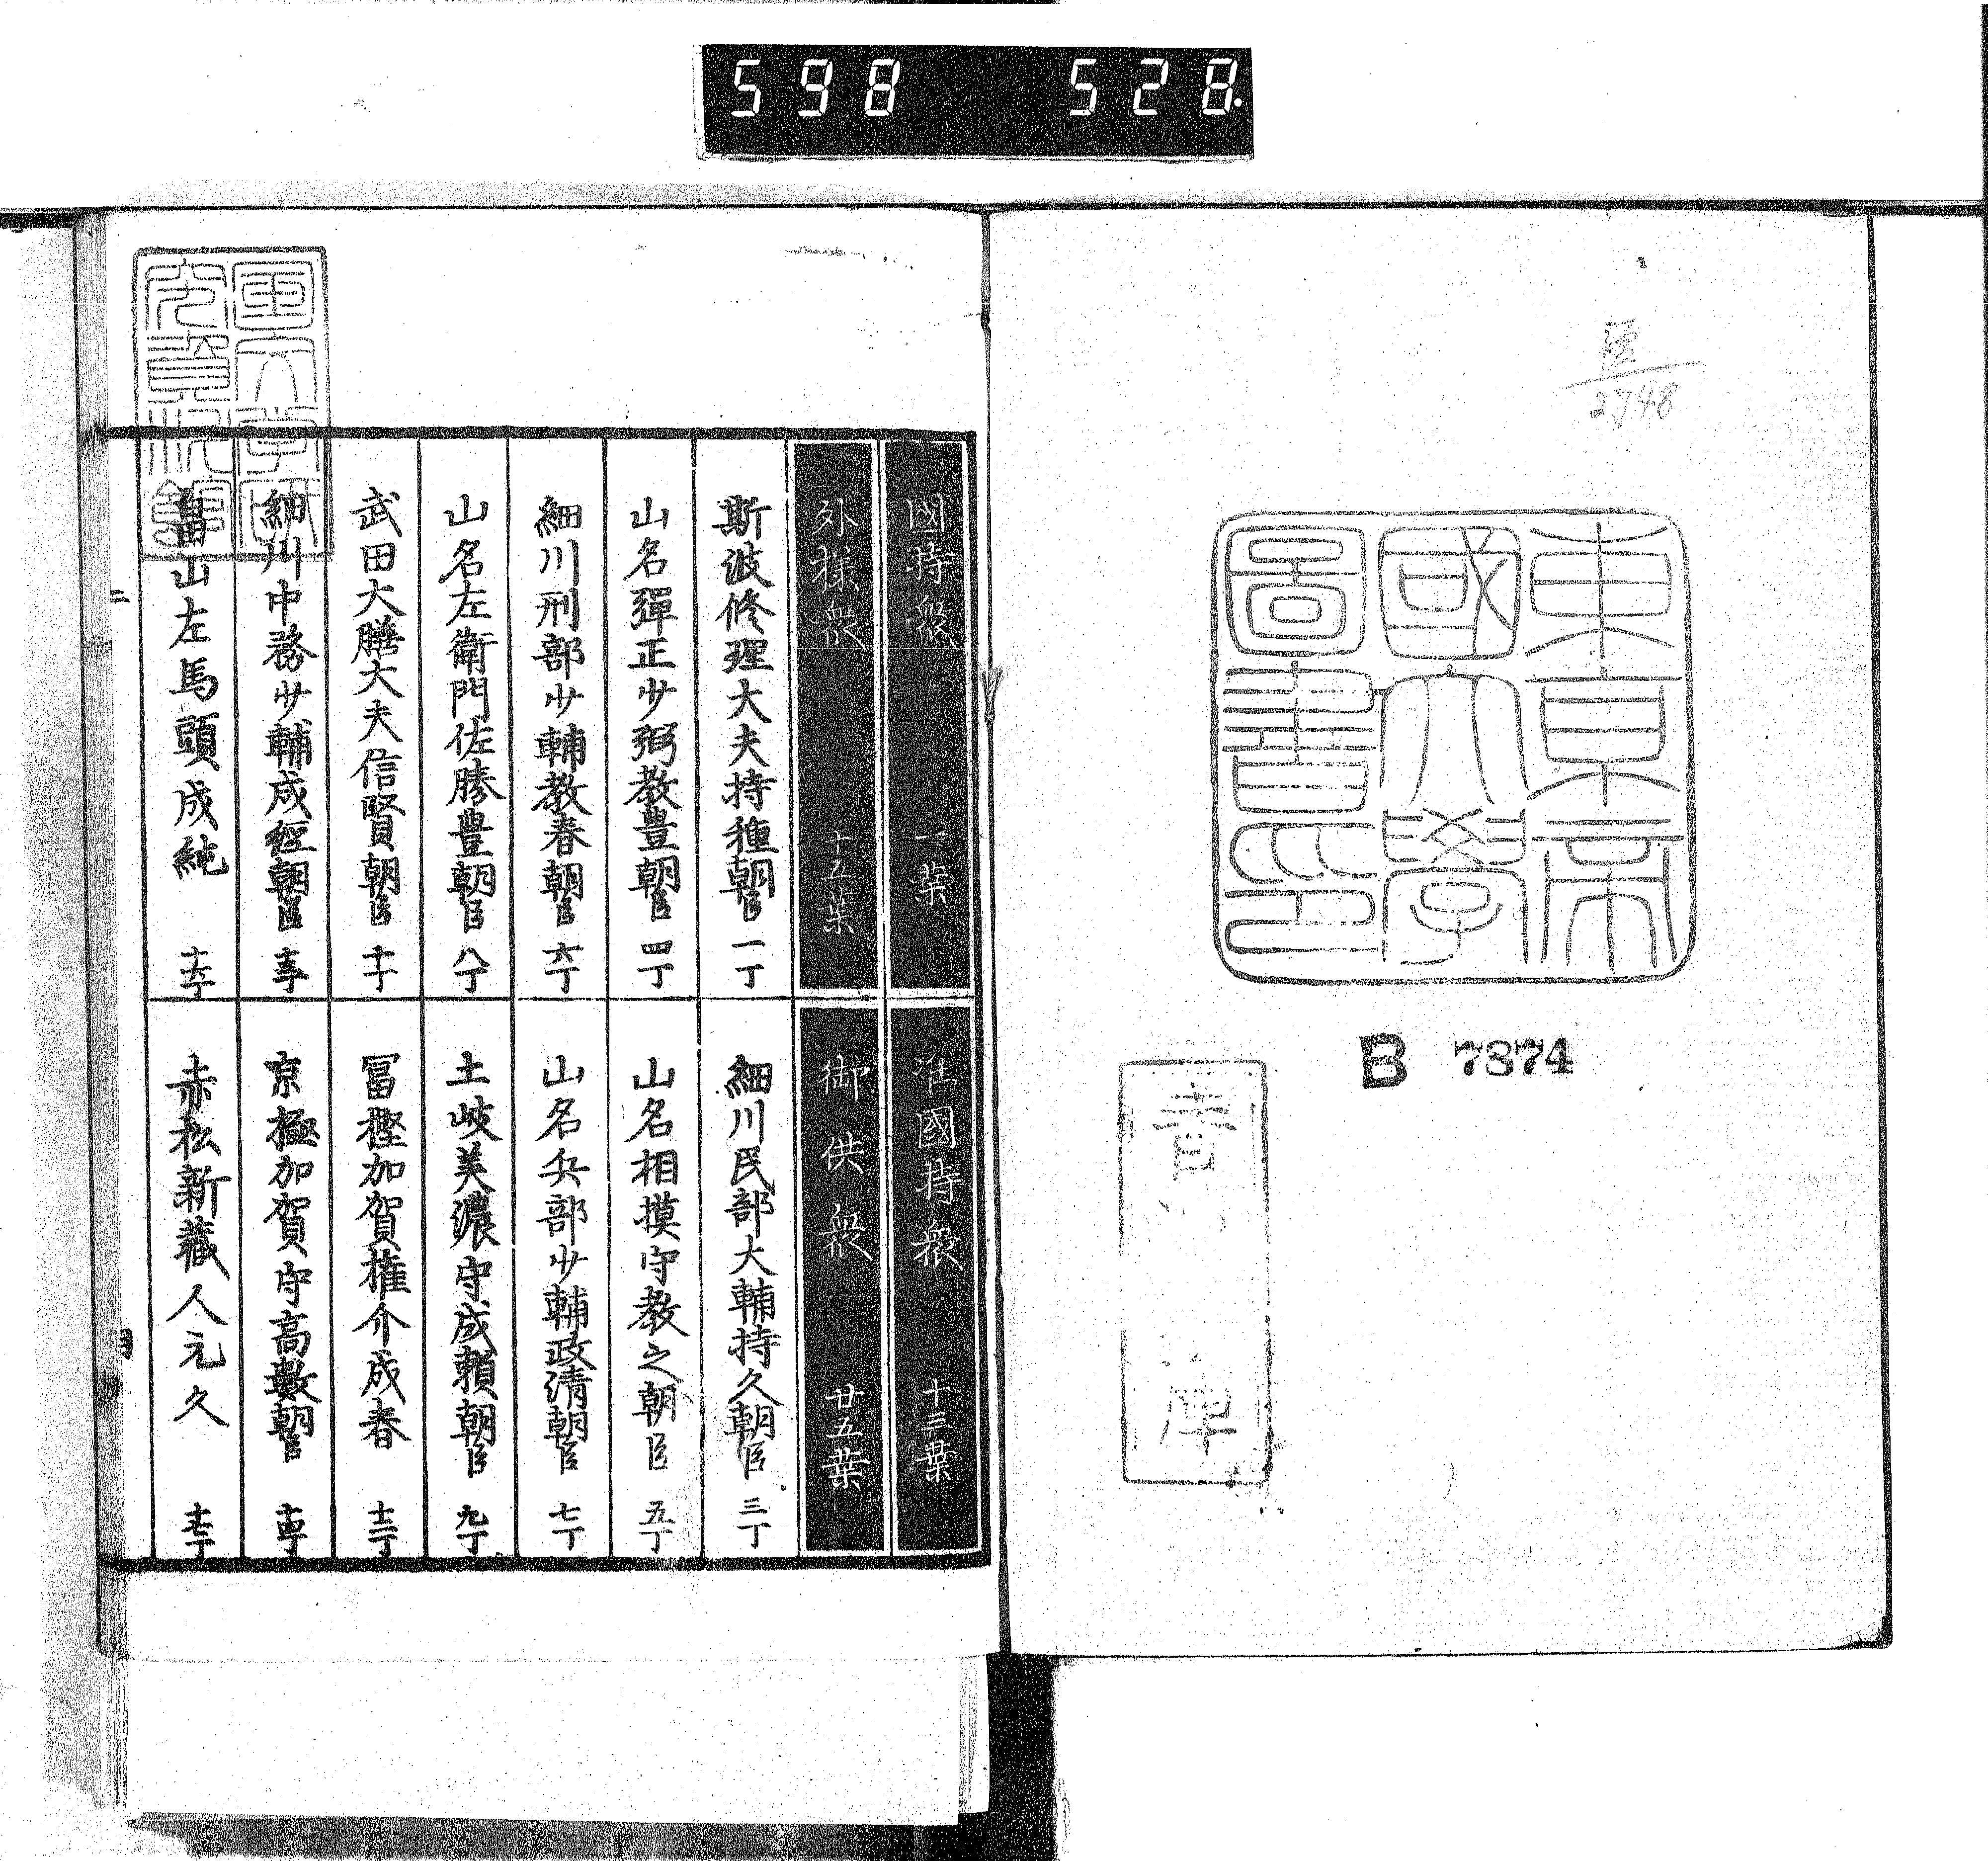 598 528.
2748
東京帝
國大學
圖書印
B 7874
青
庫
國文学研
究資料館
國持衆 一葉
准國持衆 十三葉
外様衆 十五葉
御供衆 廿五葉
斯波修理大夫持種朝臣 一丁
細川民部大輔持久朝臣 三丁
山名彈正少弼教豊朝臣 四丁
山名相摸守教之朝臣 五丁
細川刑部少輔教春朝臣 六丁
山名兵部少輔政清朝臣 七丁
山名左衛門佐勝豊朝臣 八丁
土岐美濃守成頼朝臣 九丁
武田大膳大夫信賢朝臣 十一丁
冨樫加賀権介成春 十二丁
細川中務少輔成經朝臣 十三丁
京極加賀守高數朝臣 十四丁
畠山左馬頭成純 十六丁
赤松新蔵人元久 十七丁
二